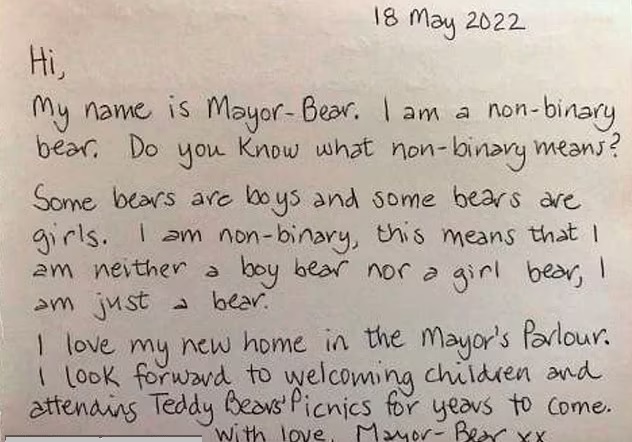 18 May 2022
Hi,
My name is Mayor-Bear. I am a non-binary
bear. Do you know what non-binary means?
Some bears are boys and some bears are
girls. I am non-binary, this means that I
am neither a boy bear nor a girl bear, I
am just a bear.
I love my new home in the Mayor's Parlour.
I look forward to welcoming children and
attending Teddy Bears' Picnics for years to come.
With love, Mayor-Bear xx